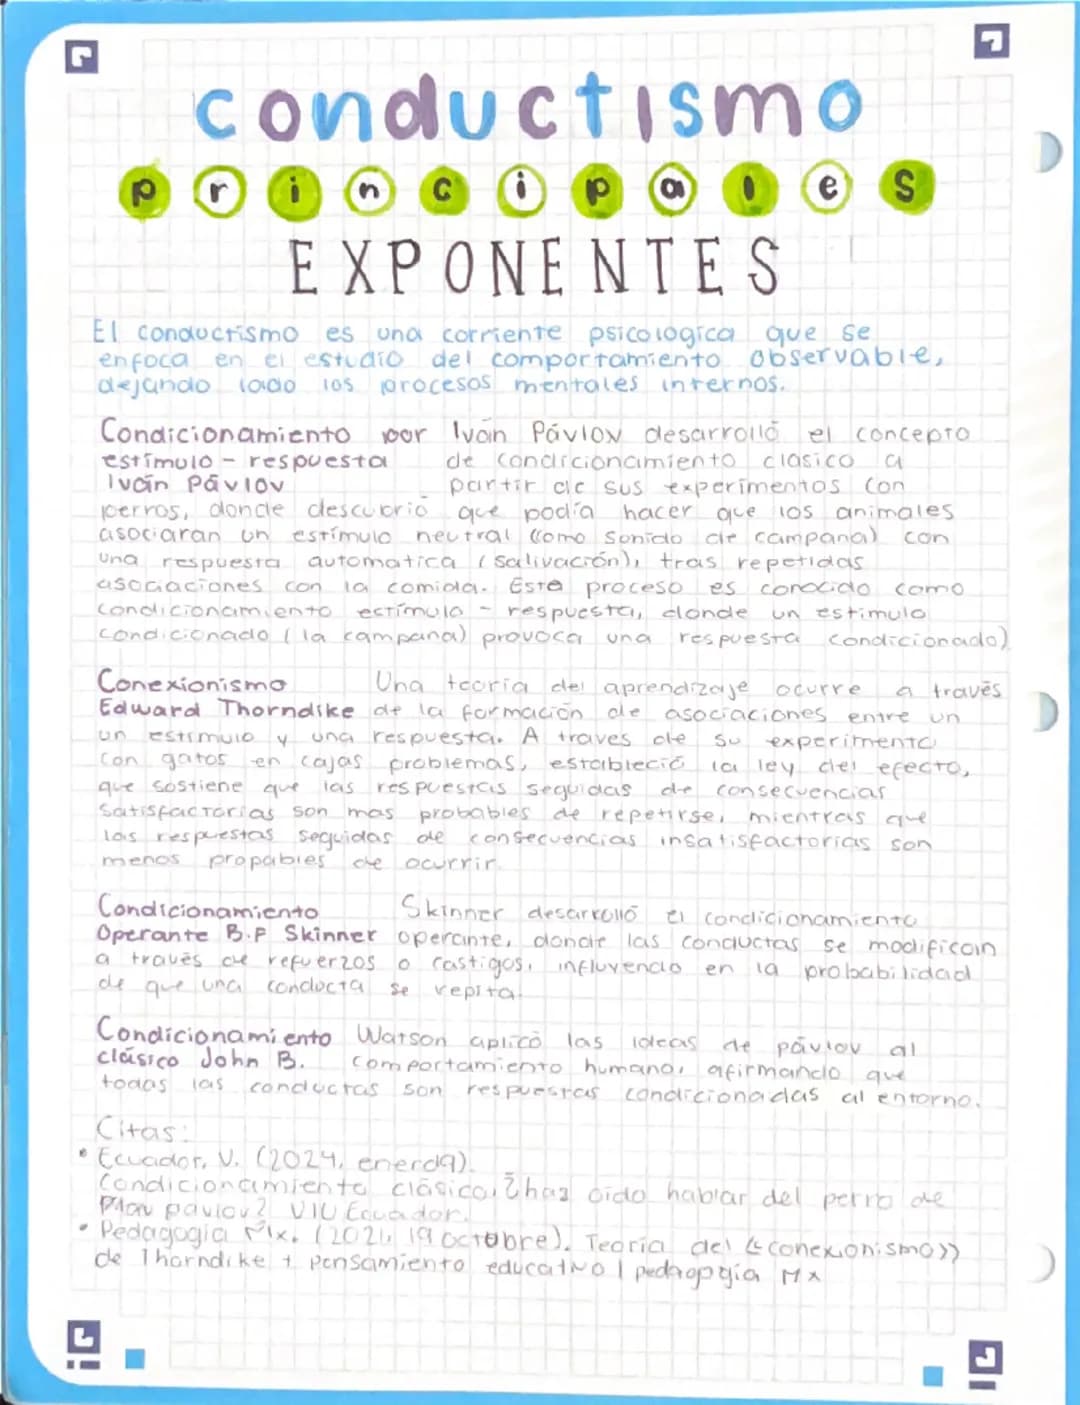 conductismo
principales
EXPONENTES
El conductismo es una corriente psicologica que se
enfoca en el estudio del comportamiento observable,
dejando lado los procesos mentales internos.
Condicionamiento por Iván Pávlov desarrolló el concepto
estímulo - respuesta de condicionamiento clasico a
Iván Pávlov partir de sus experimentos con
perros, donde descubrió que podía hacer que los animales
asociaran un estímulo neutral (como sonido de campana) con
una respuesta automatica (salivación), tras repetidas
asociaciones con la comida. Este proceso es conocido como
condicionamiento estímulo - respuesta, donde un estimulo
condicionado (la campana) provoca una respuesta condicionado)
Conexionismo Una teoría del aprendizaje ocurre a través
Edward Thorndike de la formación de asociaciones entre un
un estímulo y una respuesta. A traves de su experimento
con gatos en cajas problemas, estableció la ley del efecto,
que sostiene que las respuestas seguidas de consecuencias
satisfactorias son mas probables de repetirse, mientras que
las respuestas seguidas de consecuencias insatisfactorias son
menos propables de ocurrir.
Condicionamiento Skinner desarrolló el condicionamiento
Operante B.F Skinner operante, donde las conductas se modifican
a través de refuerzos o castigos, influyendo en la probabilidad
de que una conducta se repita.
Condicionamiento Watson aplicó las ideas de pávlov al
clásico John B. comportamiento humano, afirmando que
todas las conductas son respuestas condicionadas al entorno.
Citas:
• Ecuador, V. (2024, enero
Condicionamiento clásico, ¿has oido hablar del perro de
pavlov? VIU Ecuador.
• Pedagogia Mx. (2021, 19 octubre). Teoría del «conexionismo»
de Thorndike + pensamiento educativo | Mx